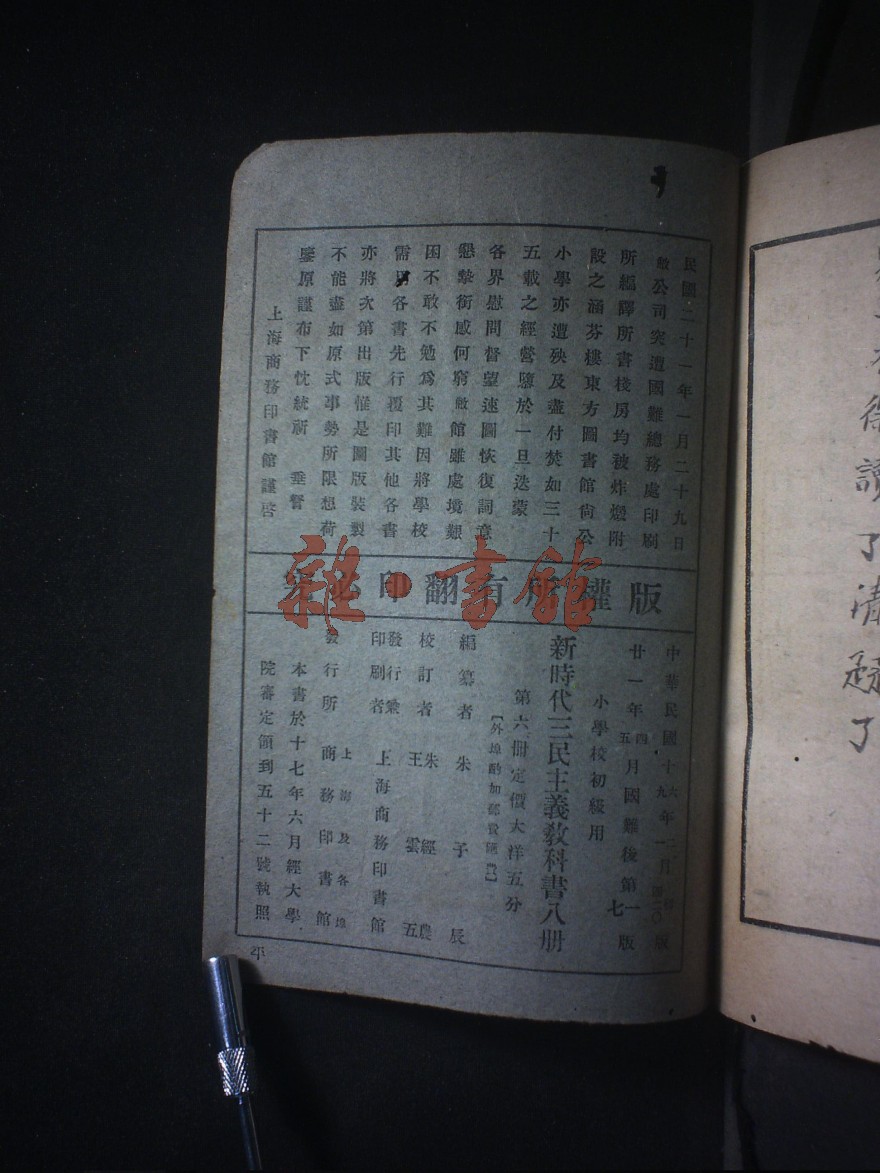 民國二十一年一月二十九日
敝公司突遭國難總務處印刷
所編譯所書棧房均被炸燬附
設之涵芬樓東方圖書館尙公
小學亦遭殃及盡付焚如三十
五載之經營隳於一旦迭蒙
各界慰問督望速圖恢復詞意
懇摯銜感何窮敝館雖處境艱
困不敢不勉爲其難因將學校
需用各書先行覆印其他各書
亦將次第出版惟是圖版裝製
不能盡如原式事勢所限想荷
鑒原謹布下忱統祈 垂詧
上海商務印書館謹啓
版權所有翻印必究
雜·書館
中華民國十六年二月初版
九年一月版
廿一年四月國難後第一版
五 七
小學校初級用
新時代三民主義敎科書八册
第六册定價大洋五分
【外埠酌加郵費匯費】
編纂者 朱子辰
校訂者 朱經農
王雲五
發行兼
印刷者 上海商務印書館
發行所 上海及各埠
商務印書館
本書於十七年六月經大學
院審定領到五十二號執照
讀了淸
了